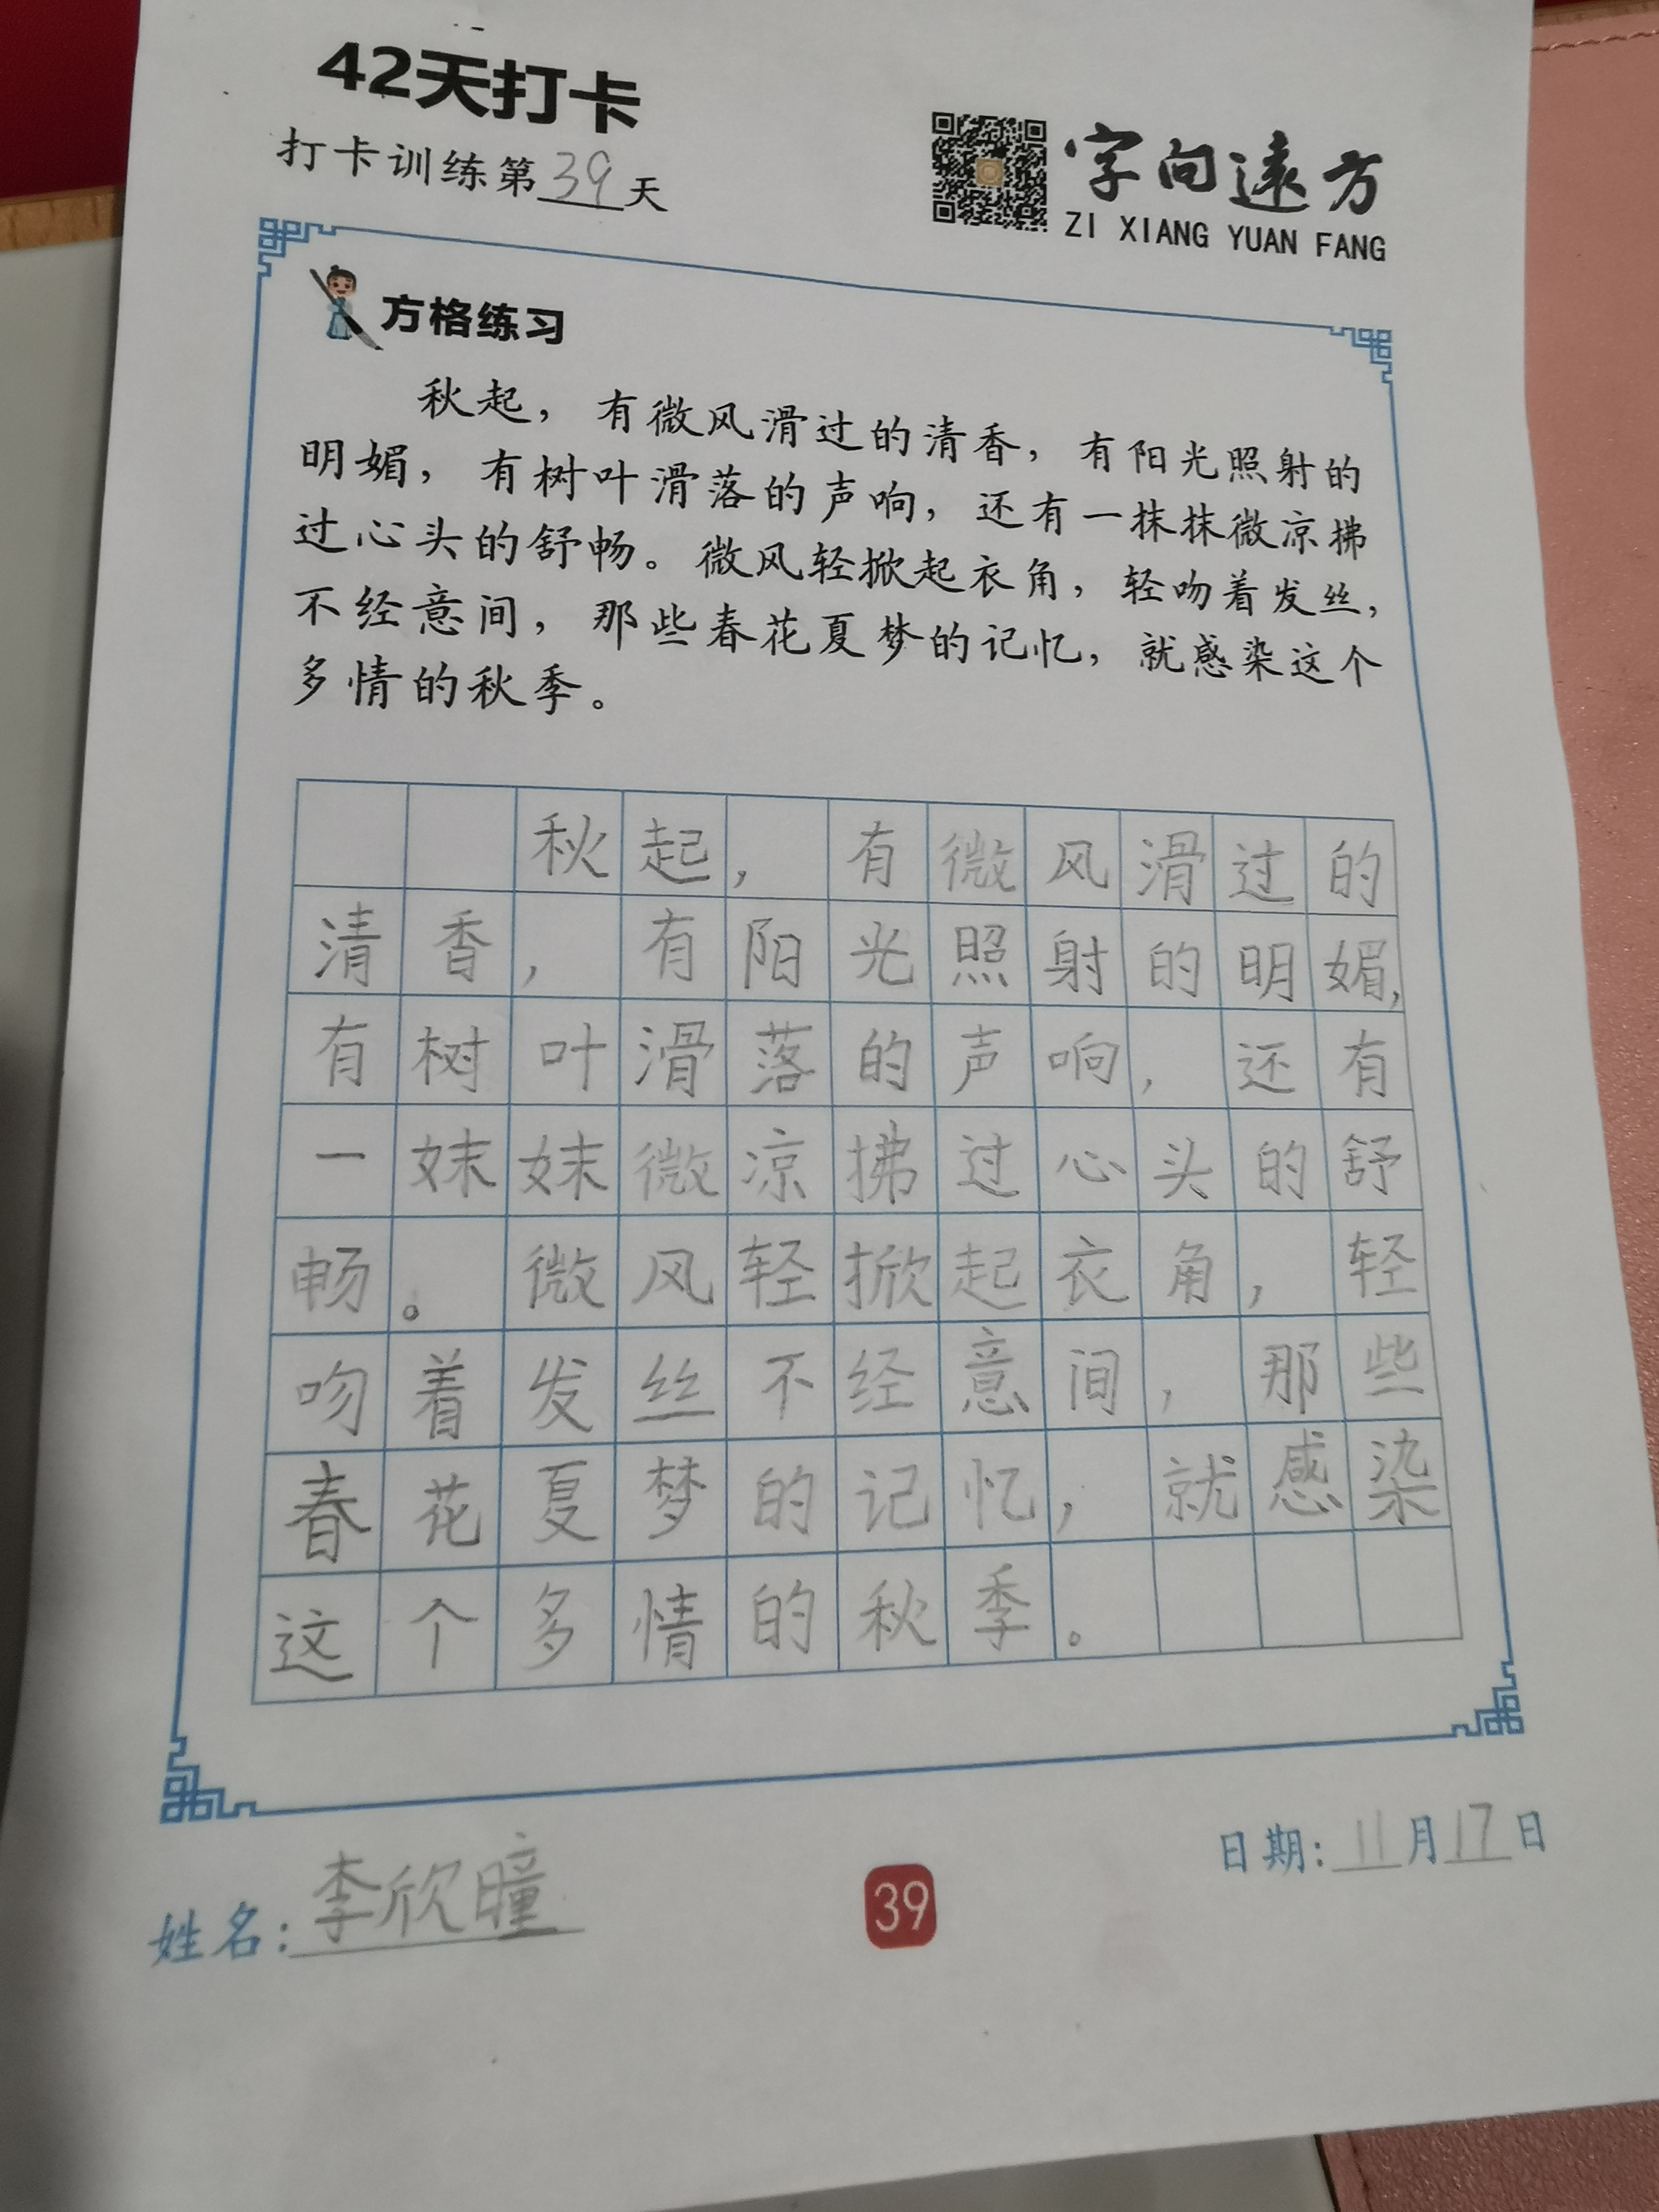 42天打卡
打卡训练第39天
字向遠方
ZI XIANG YUAN FANG
方格练习
秋起，有微风滑过的清香，有阳光照射的
明媚，有树叶滑落的声响，还有一抹抹微凉拂
过心头的舒畅。微风轻掀起衣角，轻吻着发丝，
不经意间，那些春花夏梦的记忆，就感染这个
多情的秋季。
秋起，有微风滑过的
清香，有阳光照射的明媚，
有树叶滑落的声响，还有
一妹妹微凉拂过心头的舒
畅。微风轻掀起衣角，轻
吻着发丝不经意间，那些
春花夏梦的记忆，就感染
这个多情的秋季。
姓名：李欣曈
39
日期：11月17日